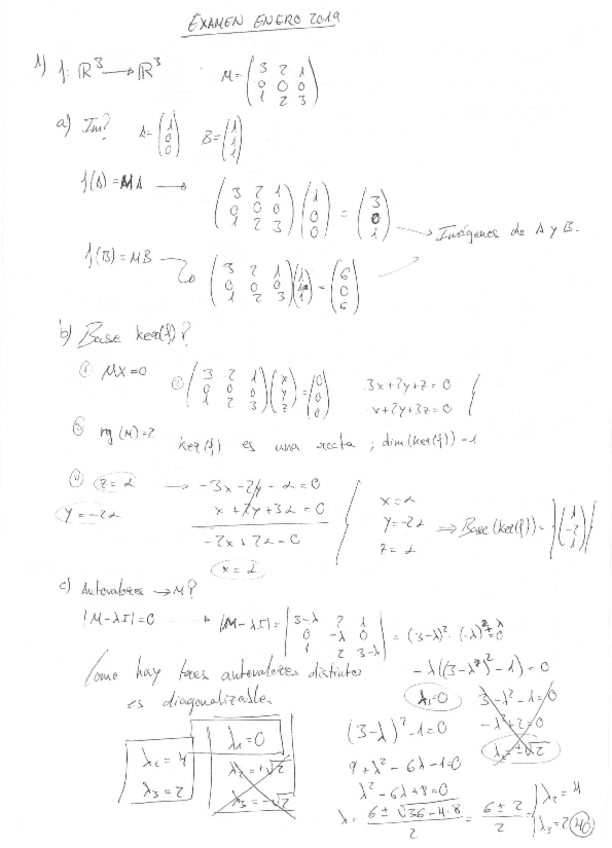 EXAMEN ENERO 2019
1) f: ℝ³ → ℝ³ M = (3 2 1; 0 0 0; 1 2 3)
a) Im? A = (1; 0; 0) B = (1; 1; 1)
f(A) = MA → (3 2 1; 0 0 0; 1 2 3)(1; 0; 0) = (3; 0; 1)
→ Imágenes de A y B.
f(B) = MB → (3 2 1; 0 0 0; 1 2 3)(1; 1; 1) = (6; 0; 6)
b) Base ker(f)?
① MX = 0 ② (3 2 1; 0 0 0; 1 2 3)(x; y; z) = (0; 0; 0)
3x + 2y + z = 0
x + 2y + 3z = 0
③ rg(M) = 2 ker(f) es una recta ; dim(ker(f)) = 1
④ z = α → -3x - 2y - α = 0
y = -2α x + 2y + 3α = 0
-2x + 2α = 0
x = α
x = α
y = -2α ⇒ Base(ker(f)) = {(1; -2; 1)}
z = α
c) Autovalores → M?
|M - λI| = 0 → |M - λI| = |3-λ 2 1; 0 -λ 0; 1 2 3-λ| = (3-λ)² · (-λ) + λ = 0
Como hay tres autovalores distintos
es diagonalizable
-λ((3-λ)² - 1) = 0
λ₁ = 0
3 - λ² - 1 = 0
-λ² + 2 = 0
λ₂ = ±√2
(3-λ)² - 1 = 0
9 + λ² - 6λ - 1 = 0
λ² - 6λ + 8 = 0
λ = (6 ± √(36 - 4·8))/2 = (6 ± 2)/2 = λ₂ = 4
λ₃ = 2
λ₁ = 0
λ₂ = 4
λ₃ = 2
λ₂ = +√2
λ₃ = -√2
40